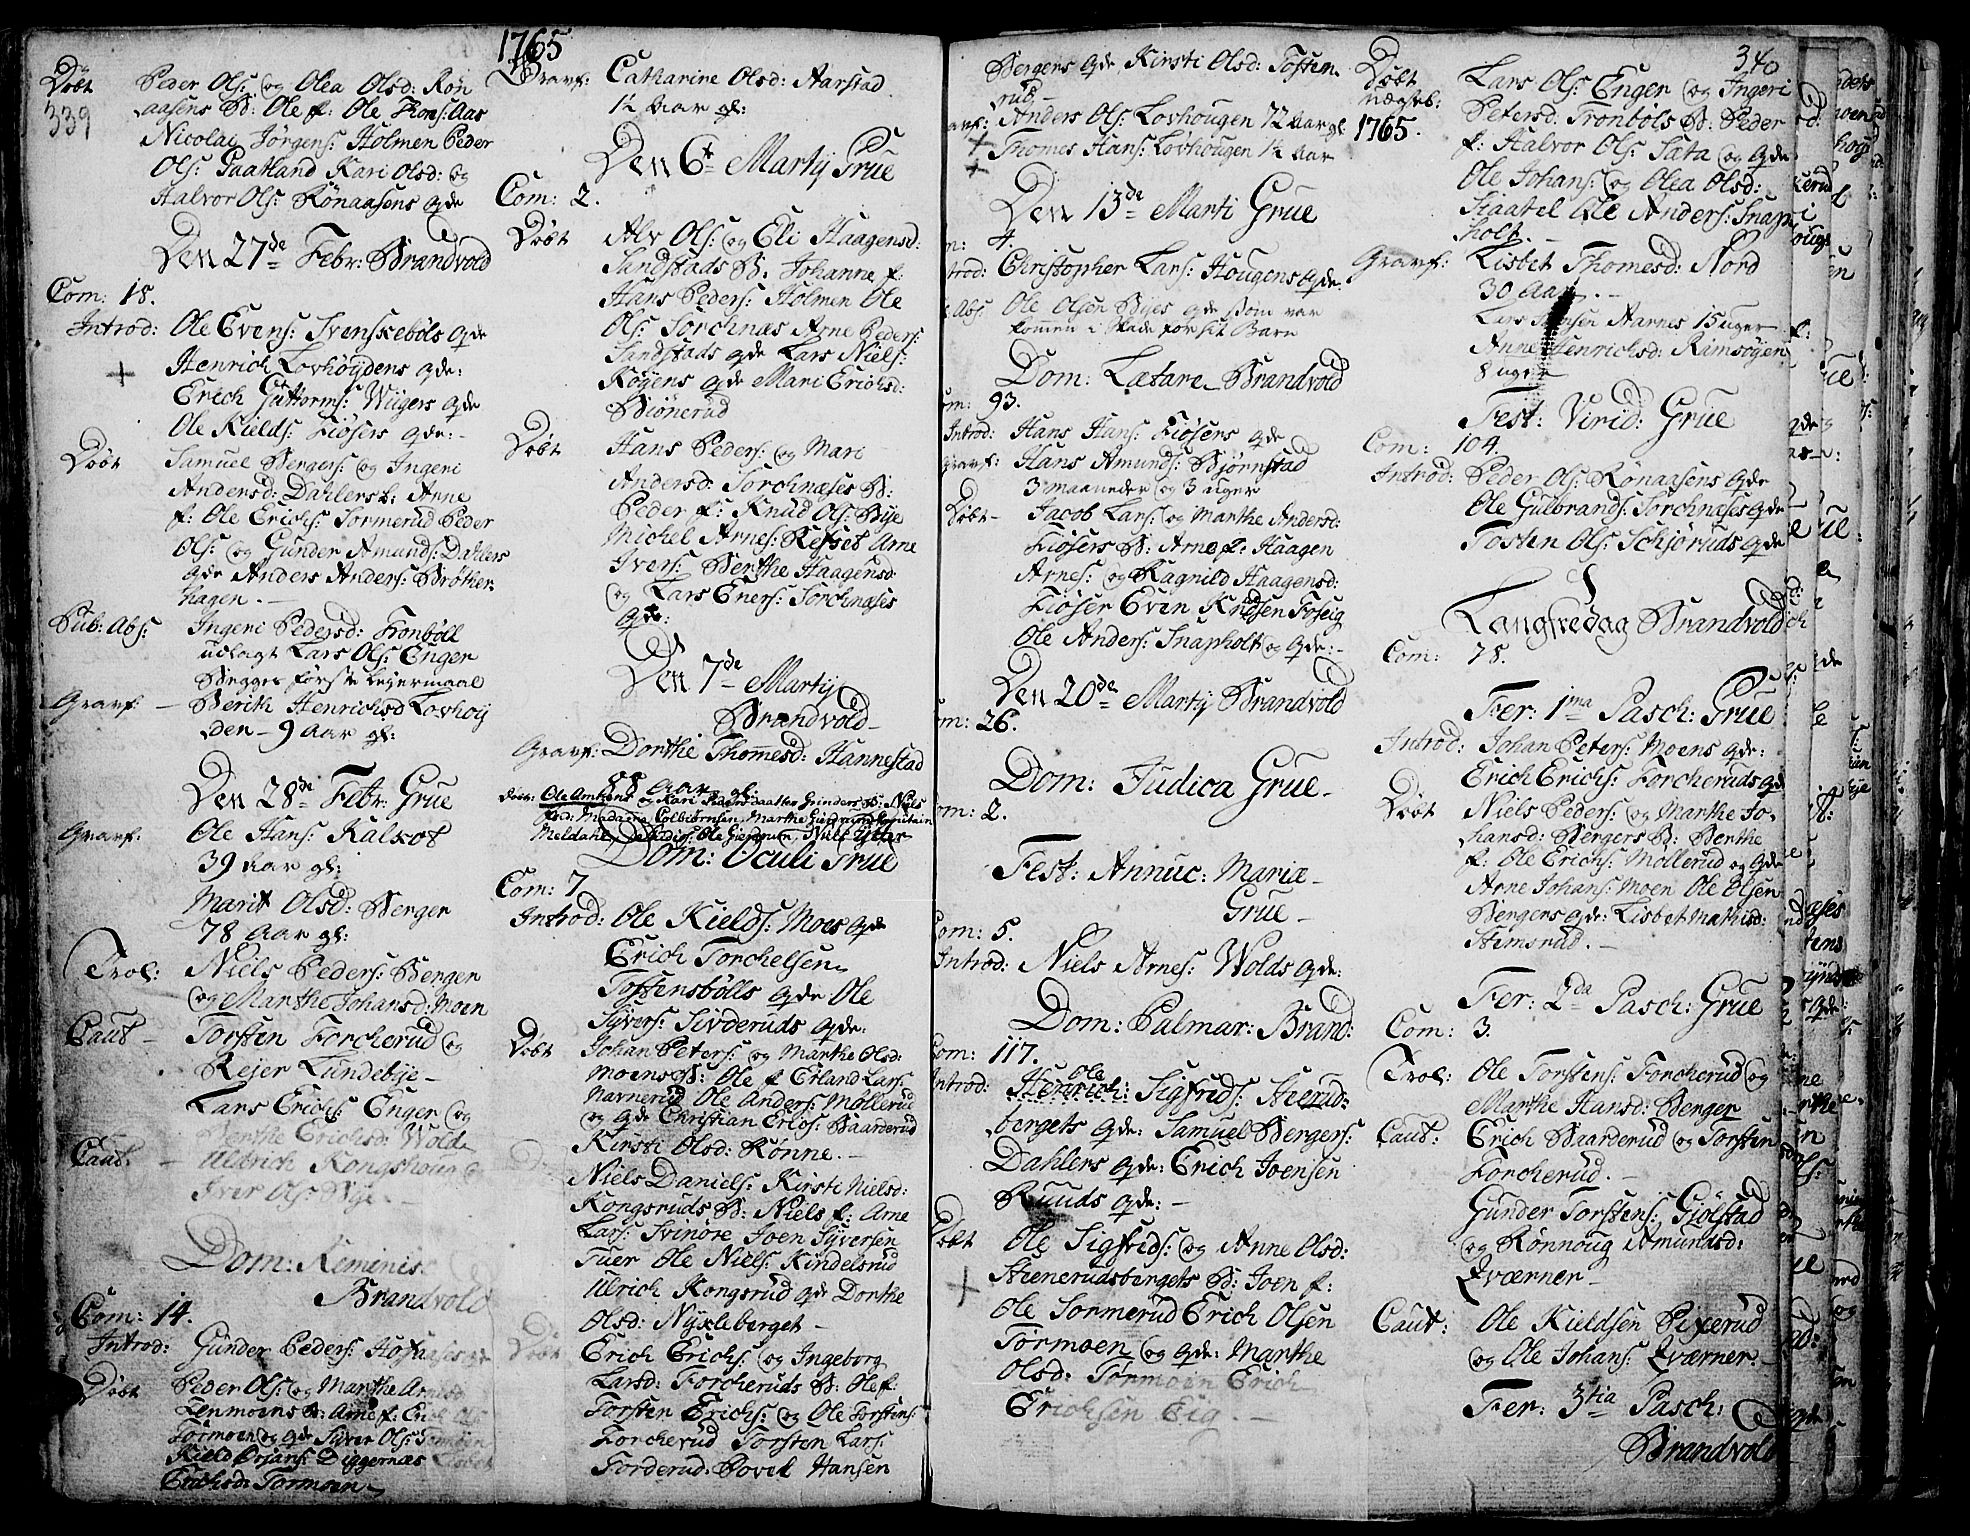 1765
Döbt Peder Ols: og Olea Olsd: Rön
339 aasens B: Ole f: Ole Thors: Aas
Nicolai Jörgens: Holmen Peder
Ols: Gaatland Kari Olsd: og
Halvor Ols: Rönaasens qde
Den 27de Febr: Brandvold
Com: 18.
Introd: Ole Evens: Svenskeböls qde
+ Henrich Lovhöydens qde:
Erich Guttorms: Wiigers qde
Ole Kields: Fiösers qde:-
Döbt Samuel Bergers: og Ingeri
Andersd: Dahlers b: Anne
f: Ole Erichs: Sormerud Peder
Ols: og Gunder Amunds: Dahlers
qde Anders Anders: Bröther
hagen. -
Pub: Abs: Ingeri Pedersd: Tronböll
udlagt Lars Ols: Enger
Begges förste lejermaal
Gravf: - Berith Henrichsd Lovhöy
den - 9 Aar gl:
Den 28de Febr: Grue
Gravf: Ole Hans: Kalsot
39 Aar gl:
Marit Olsd: Berger
78 Aar gl:
Trol: Niels Peders: Berger
og Marthe Johansd: Moen
Caut - Torsten Forcherud og
Rejer Lundebye -
Lars Erichs: Enger og
Berthe Erichsd: Wold
Caut: - Uldrich Kongshoug og
Iver Ols: Bye. -
Dom: Reminis:
Brandvold
Com: 14.
Introd: Gunder Peders: Hofnæses qde
Döbt Peder Ols: og Marthe Arnesd:
Lenmoens B: Arne f: Erich Ols:
Tormoen og qde Siver Ols: Tormoen
Kield Örjans: Diggernæs Lisbet
Erichsd: Tormoen -
Gravf: Catharine Olsd: Aarstad
1½ Aar gl:
Den 6te Martij Grue
Com: 2.
Döbt Alv Ols: og Eli Haagensd:
Sandstads B. Johanne f:
Hans Peders: Holmen Ole
Ols: Sorchnæs Arne Peders:
Sandstads qde Lars Niels:
Köyens qde Mari Erichsd:
Biönerud
Döbt Hans Peders: og Mari
Andersd: Sorchnæses B:
Peder f: Knud Ols: Bye
Michel Arnes: Refset Arne
Ivers: Berthe Haagensd:
og Lars Eners: Sorchnæses
qde:
Den 7de Martij
Brandvold -
Gravf: Dorthe Thomesd: Hannestad
88 Aar gl:
Döbt: Ole Arntzens og Kari Pedersdaatter Grinders B: Niels
fad: Madame Colbiörnsen, Marthe Giedrum Capitain
Meldahl, Ole Giedrum, Niels
Dom: Oculi Grue
Com: 7
Introd: Ole Kields: Moes qde
Erich Torchelsen
Tostensbölls qde Ole
Syvers: Sivderuds qde:
Döbt Johan Peters: og Marthe Olsd:
Moens B: Ole f Erland Lars:
Navnerud Ole Anders: Mollerud
og qde Christian Erlos: Baarderud
Kirsti Olsd: Rönne. -
Niels Daniels: Kirsti Nielsd:
Kongsruds B: Niels f: Arne
Lars: Svinöre Joen Syversen
Tuer Ole Niels: Kindelsrud
Ulrich Kongsrud qde Dorthe
Olsd: Nysleberget -
Döbt Erich Erichs: og Ingeborg
Larsd: Forcheruds B: Ole f:
Torsten Erichs: og Ole Torstens:
Forcherud Torsten Lars:
Forderud: Povel Hansen
Bergens qde Kirsti Olsd: Tosten
rud. -
Gravf: Anders Ols: Lovhougen 72 Aar gl.
+ Thomes Hans: Lovhougen 1½ Aar
+
Den 13de Marti Grue
Com: 4.
Introd: Christopher Lars: Hougens qde:
Abs Ole Olsen Byes qde som var
kommen i skade for sit Barn
Dom: Lætare Brandvold
Com: 93.
Introd: Hans Hans: Fiösers qde
Gravf: Hans Amunds: Björnstad
3 maaneder og 3 uger
Döbt - Jacob Lars: og Marthe Andersd:
Fiösers B: Arne f: Haagen
Arnes: og Ragnild Haagensd:
Fiöser Even Knudsen Foseig
Ole Anders: Snapholt og qde:-
Den 20de Martij Brandvold
Com: 26.
Dom: Judica Grue -
Com: 2.
Fest: Annuc: Mariæ -
Grue -
Com: 5.
Introd: Niels Arnes: Wolds qde:
Dom: Palmar: Brand:
Com: 117.
Ole
Introd: Henrich: Sigfrids: Stierud:
bergets qde: Samuel Bergers:
Dahlers qde: Erich Joensen
Ruuds qde: -
Döbt Ole Sigfrids: og Anne Olsd:
+ Stienerudsbergets B: Joen f:
Ole Sormerud Erich Olsen
Tormoen og qde: Marthe
Olsd: Tormoen Erich
Erichsen Eig. -
340
Döbt Lars Ols: Enger og Ingeri
uægteb: Petersd: Tronböls B: Peder
1765. f: Halvor Ols: Sata og qde
Ole Johans: og Olea Olsd:
Skaatel Ole Anders: Snap
holt. -
Gravf: Lisbet Thomesd: Nord
30 Aar. -
Lars Aarnes 15 uger
Anne Henrichsd: Rimsöyen
8 uger
Fest: Virid: Grue
Com: 104.
Introd: Peder Ols: Rönaasens qde
Ole Gulbrands: Sorchnæses qde -
Tosten Ols: Schjöruds qde
Langfredag Brandvold
Com: 78.
Fer: 1ma Pasch: Grue
Introd: Johan Peters: Moens qde:
Erich Erichs: Forcheruds qde
Döbt Niels Peders: og Marthe Jo-
hansd: Bergers B: Berthe
f: Ole Erichs: Mollerud og qde
Arne Johans: Moen Ole Olsen
Bergens qde: Lisbet Mathisd:
Stemsrud. -
Fer: 2da Pasch: Grue
Com: 3.
Trol: Ole Torstens: Forcherud og
Marthe Hansd: Berger
Caut: Erich Baarderud og Torsten
Forcherud. -
Gunder Torstens: Gjölstad
og Rönnoug Amundsd:
Qværner -
Caut: Ole Kieldsen Piperud
og Ole Johans: Qværner. -
Fer: 3tia Pasch:
Brandvold